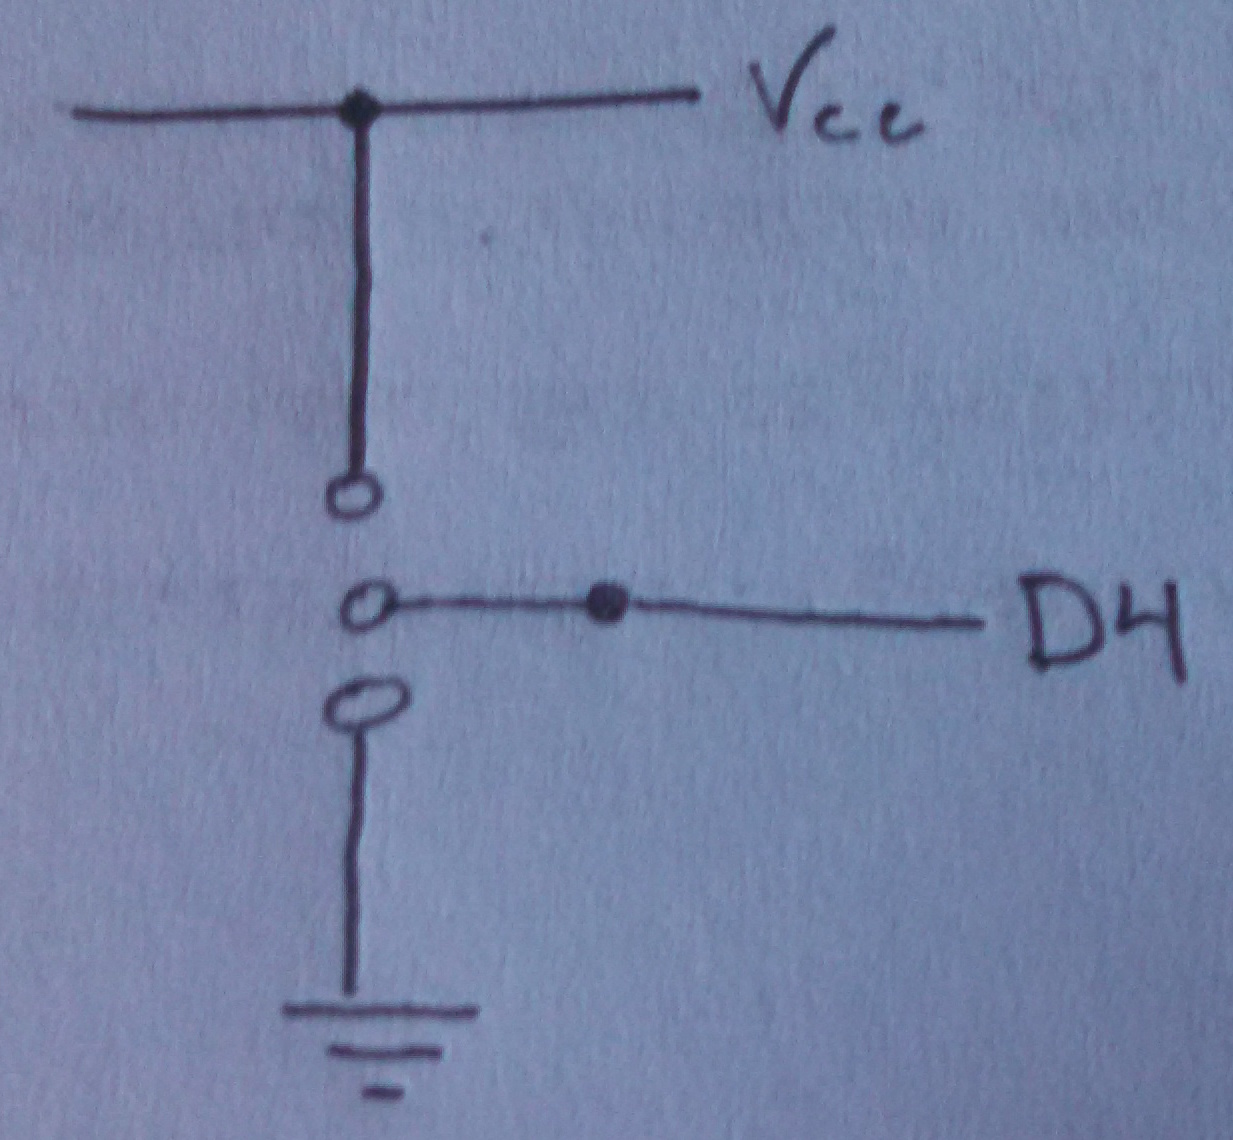 Vcc
D4